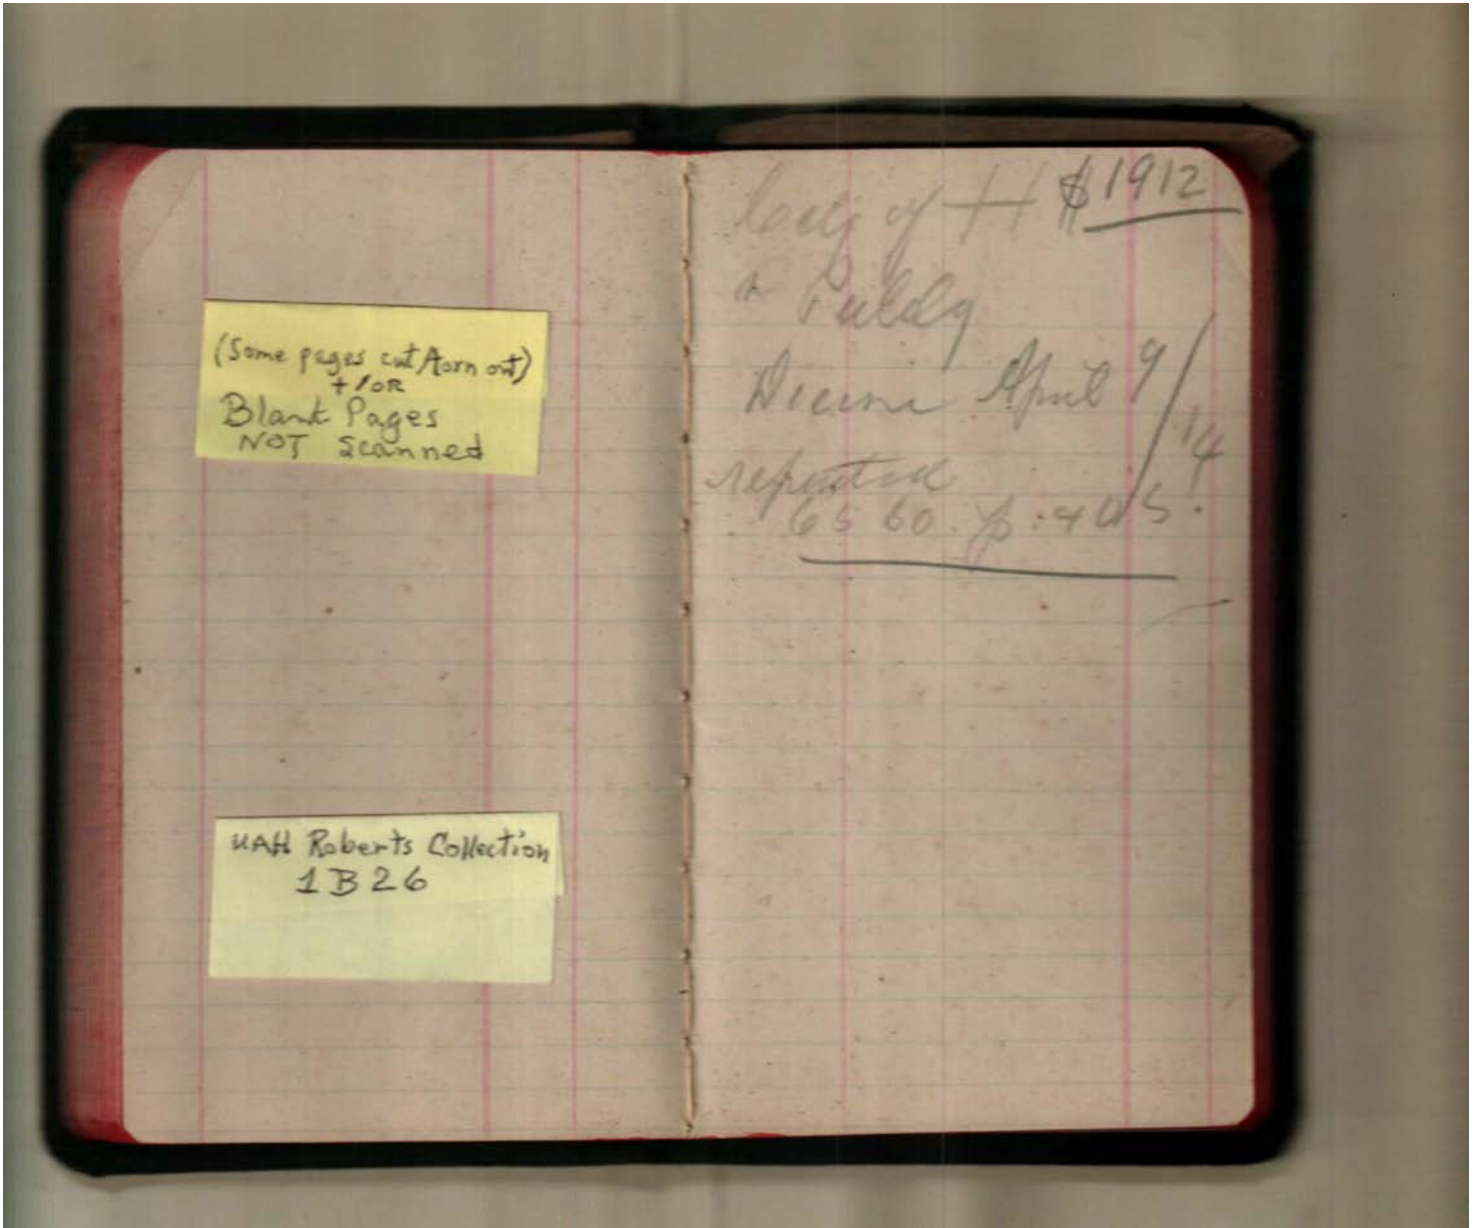 (Some pages cut/torn out)
+/OR
Blank Pages
NOT Scanned
UAH Roberts Collection
1B26
$1912
City of H
April 9/14
reported
65 60. p: